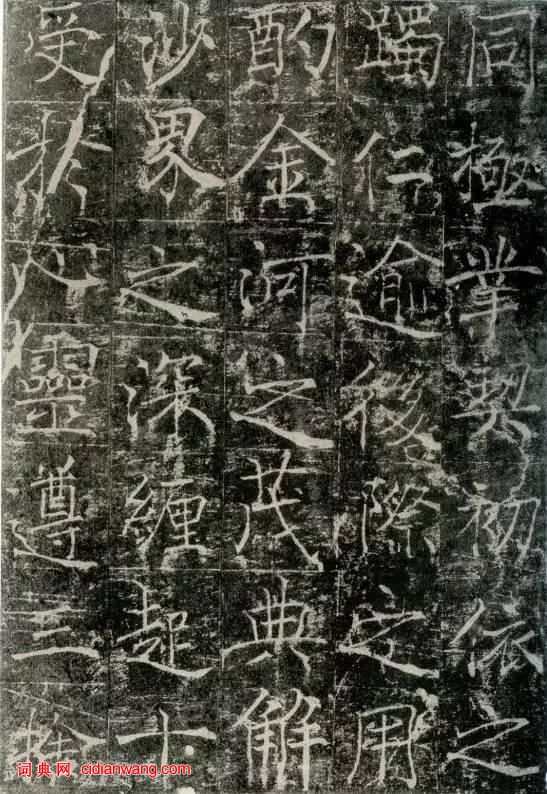 同極業契初依之
躅仁逾後際之用
酌金河之茂典解
沙界之深纏起十
受於靈遵三
词典网 cidianwang.com